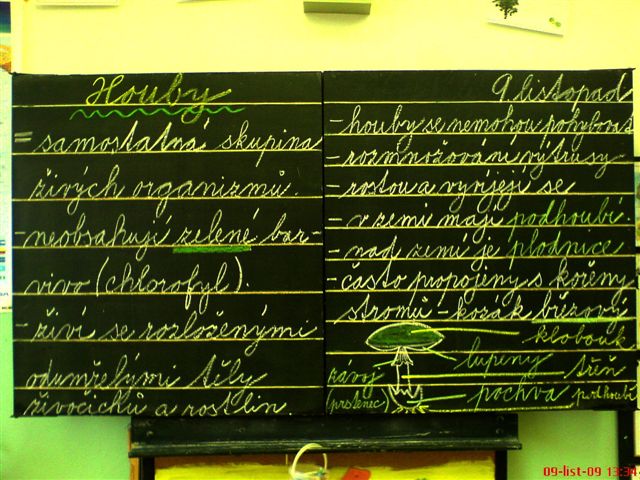 Houby
= samostatná skupina
živých organizmů.
- neobsahují zelené bar-
vivo (chlorofyl).
- živí se rozloženými
odumřelými těly
živočichů a rostlin.
9 listopad
- houby se nemohou pohybovat
- rozmnožování výtrusy
- rostou a vyvíjejí se
- v zemi mají podhoubí.
- nad zemí je plodnice
- často propojeny s kořeny
stromů - kozák březový
klobouk
lupeny
závoj
(prstenec)
třeň
pochva
podhoubí
09-list-09 13:34